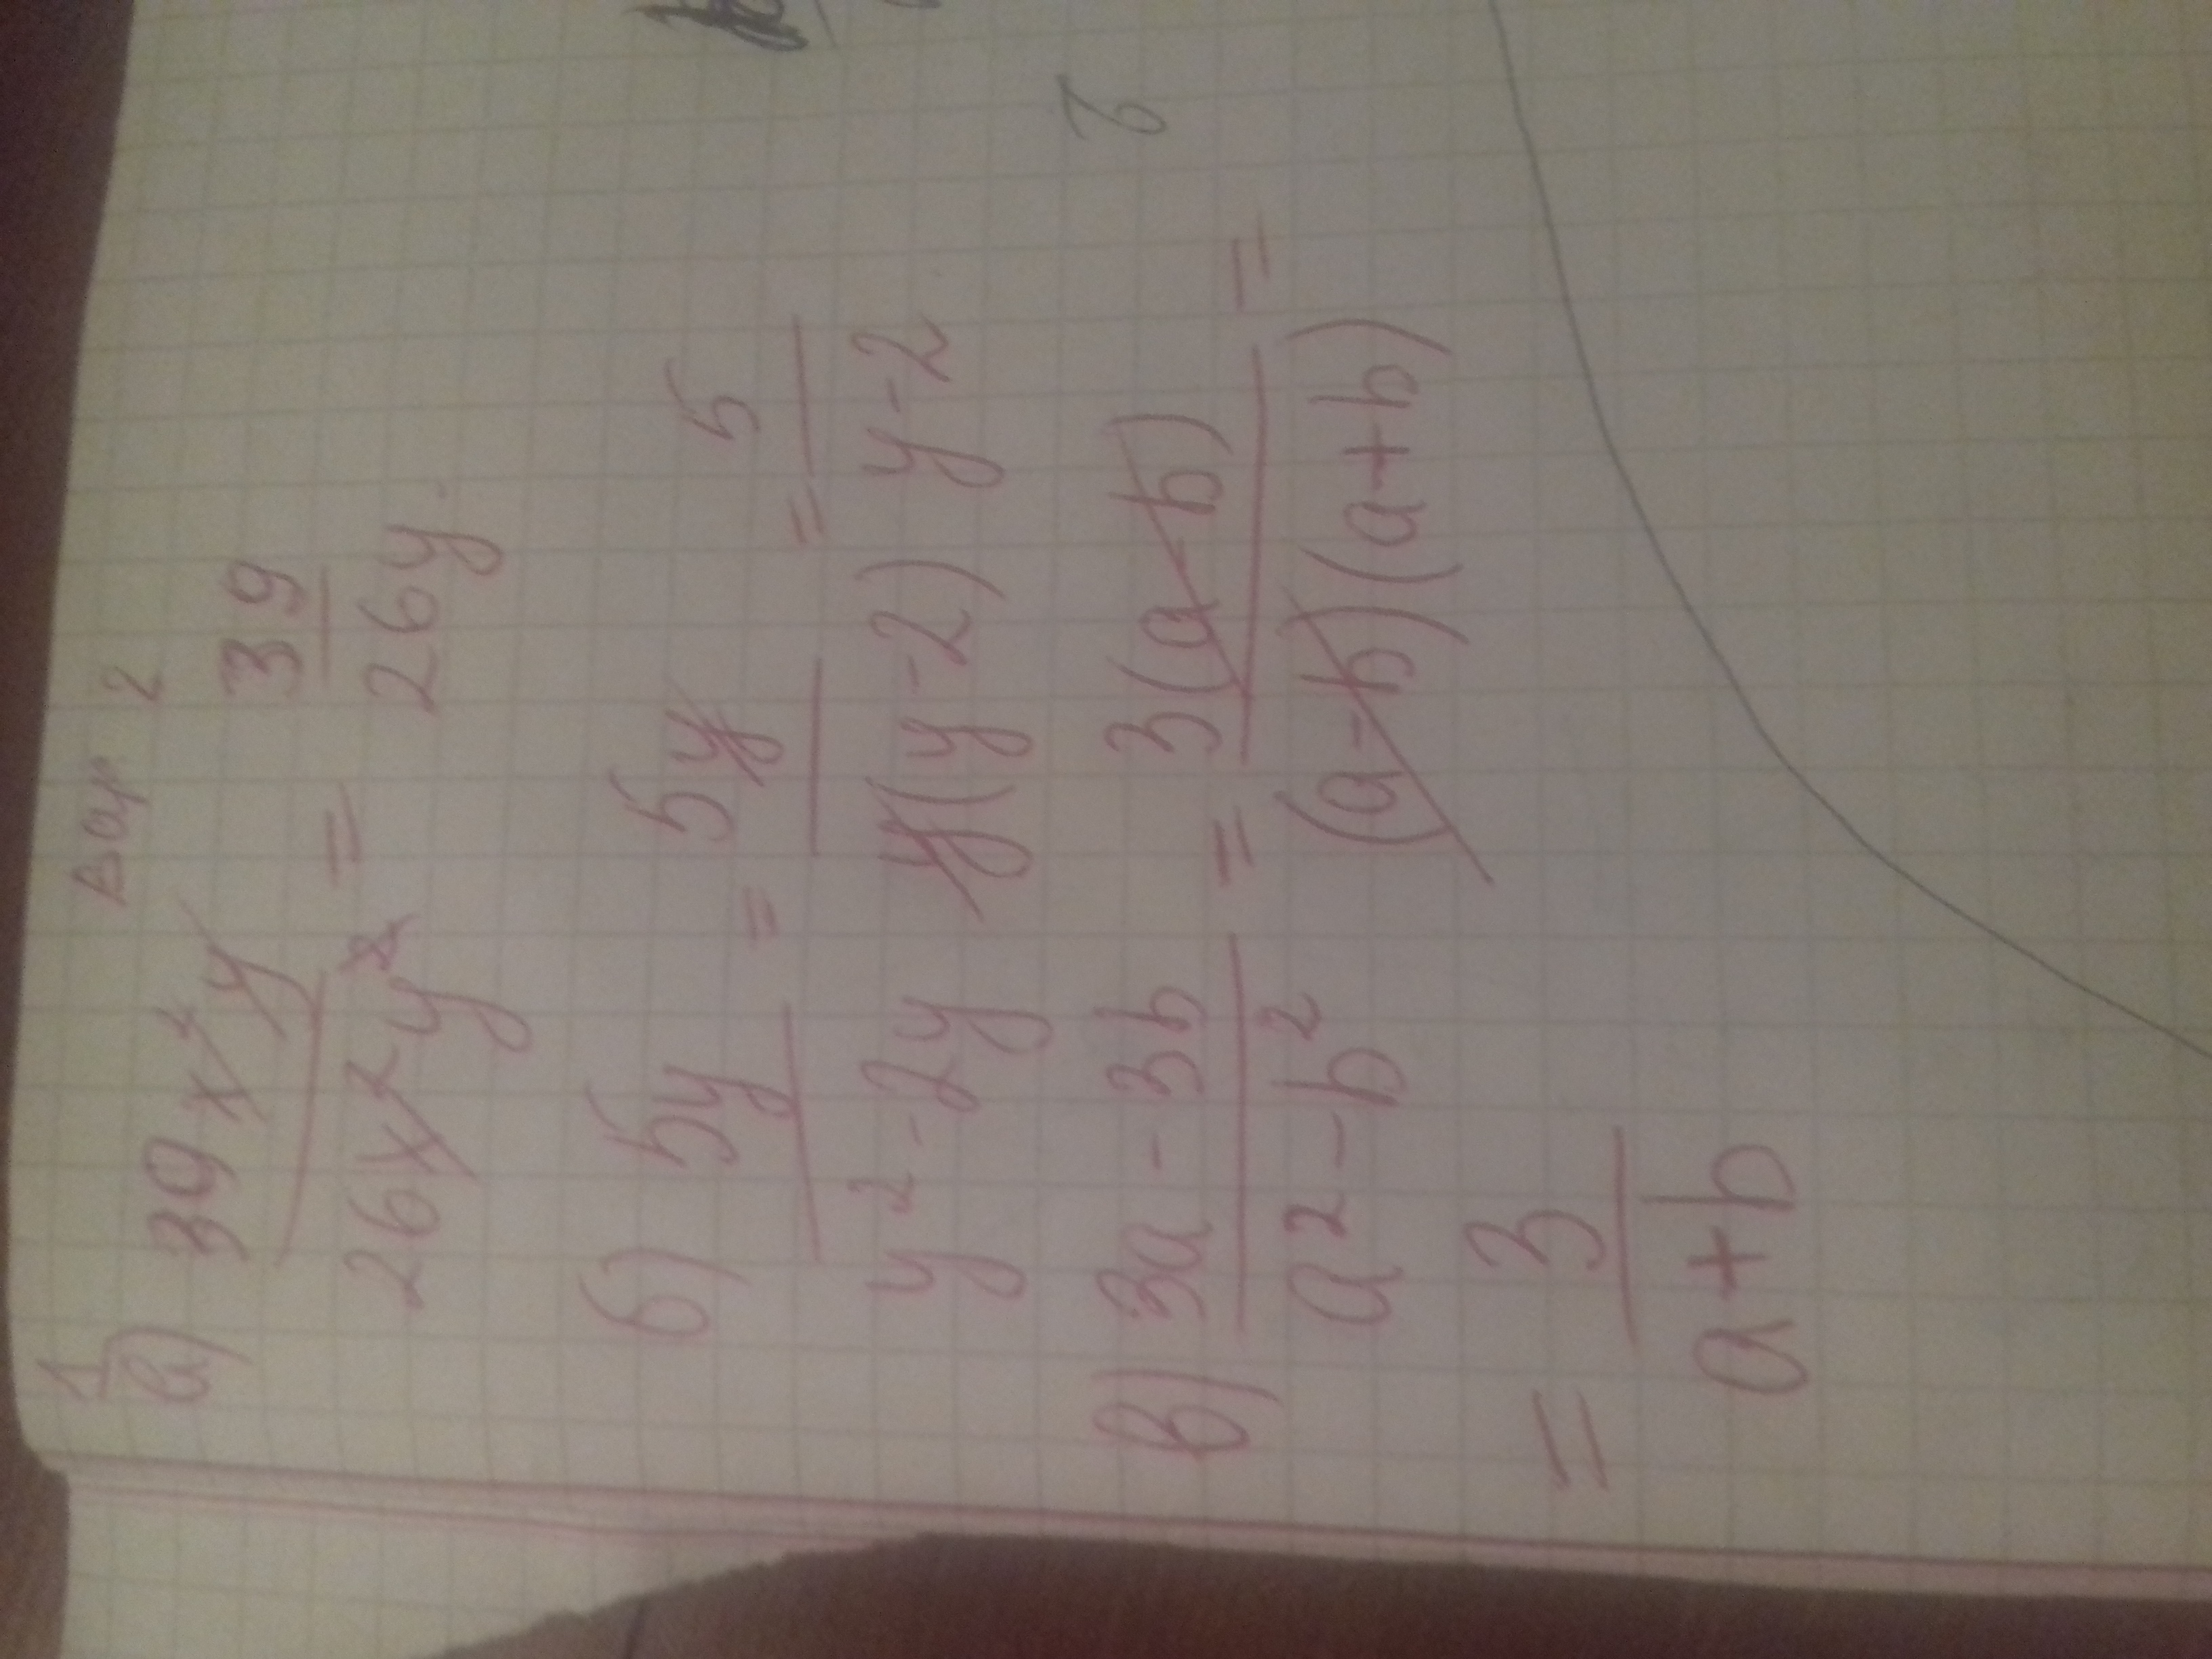 1 Вар 2
а) 39x²y / 26x²y² = 39 / 26y.
б) 5y / y² - 2y = 5y / y(y-2) = 5 / y-2
в) 3a - 3b / a² - b² = 3(a-b) / (a-b)(a+b) =
= 3 / a+b